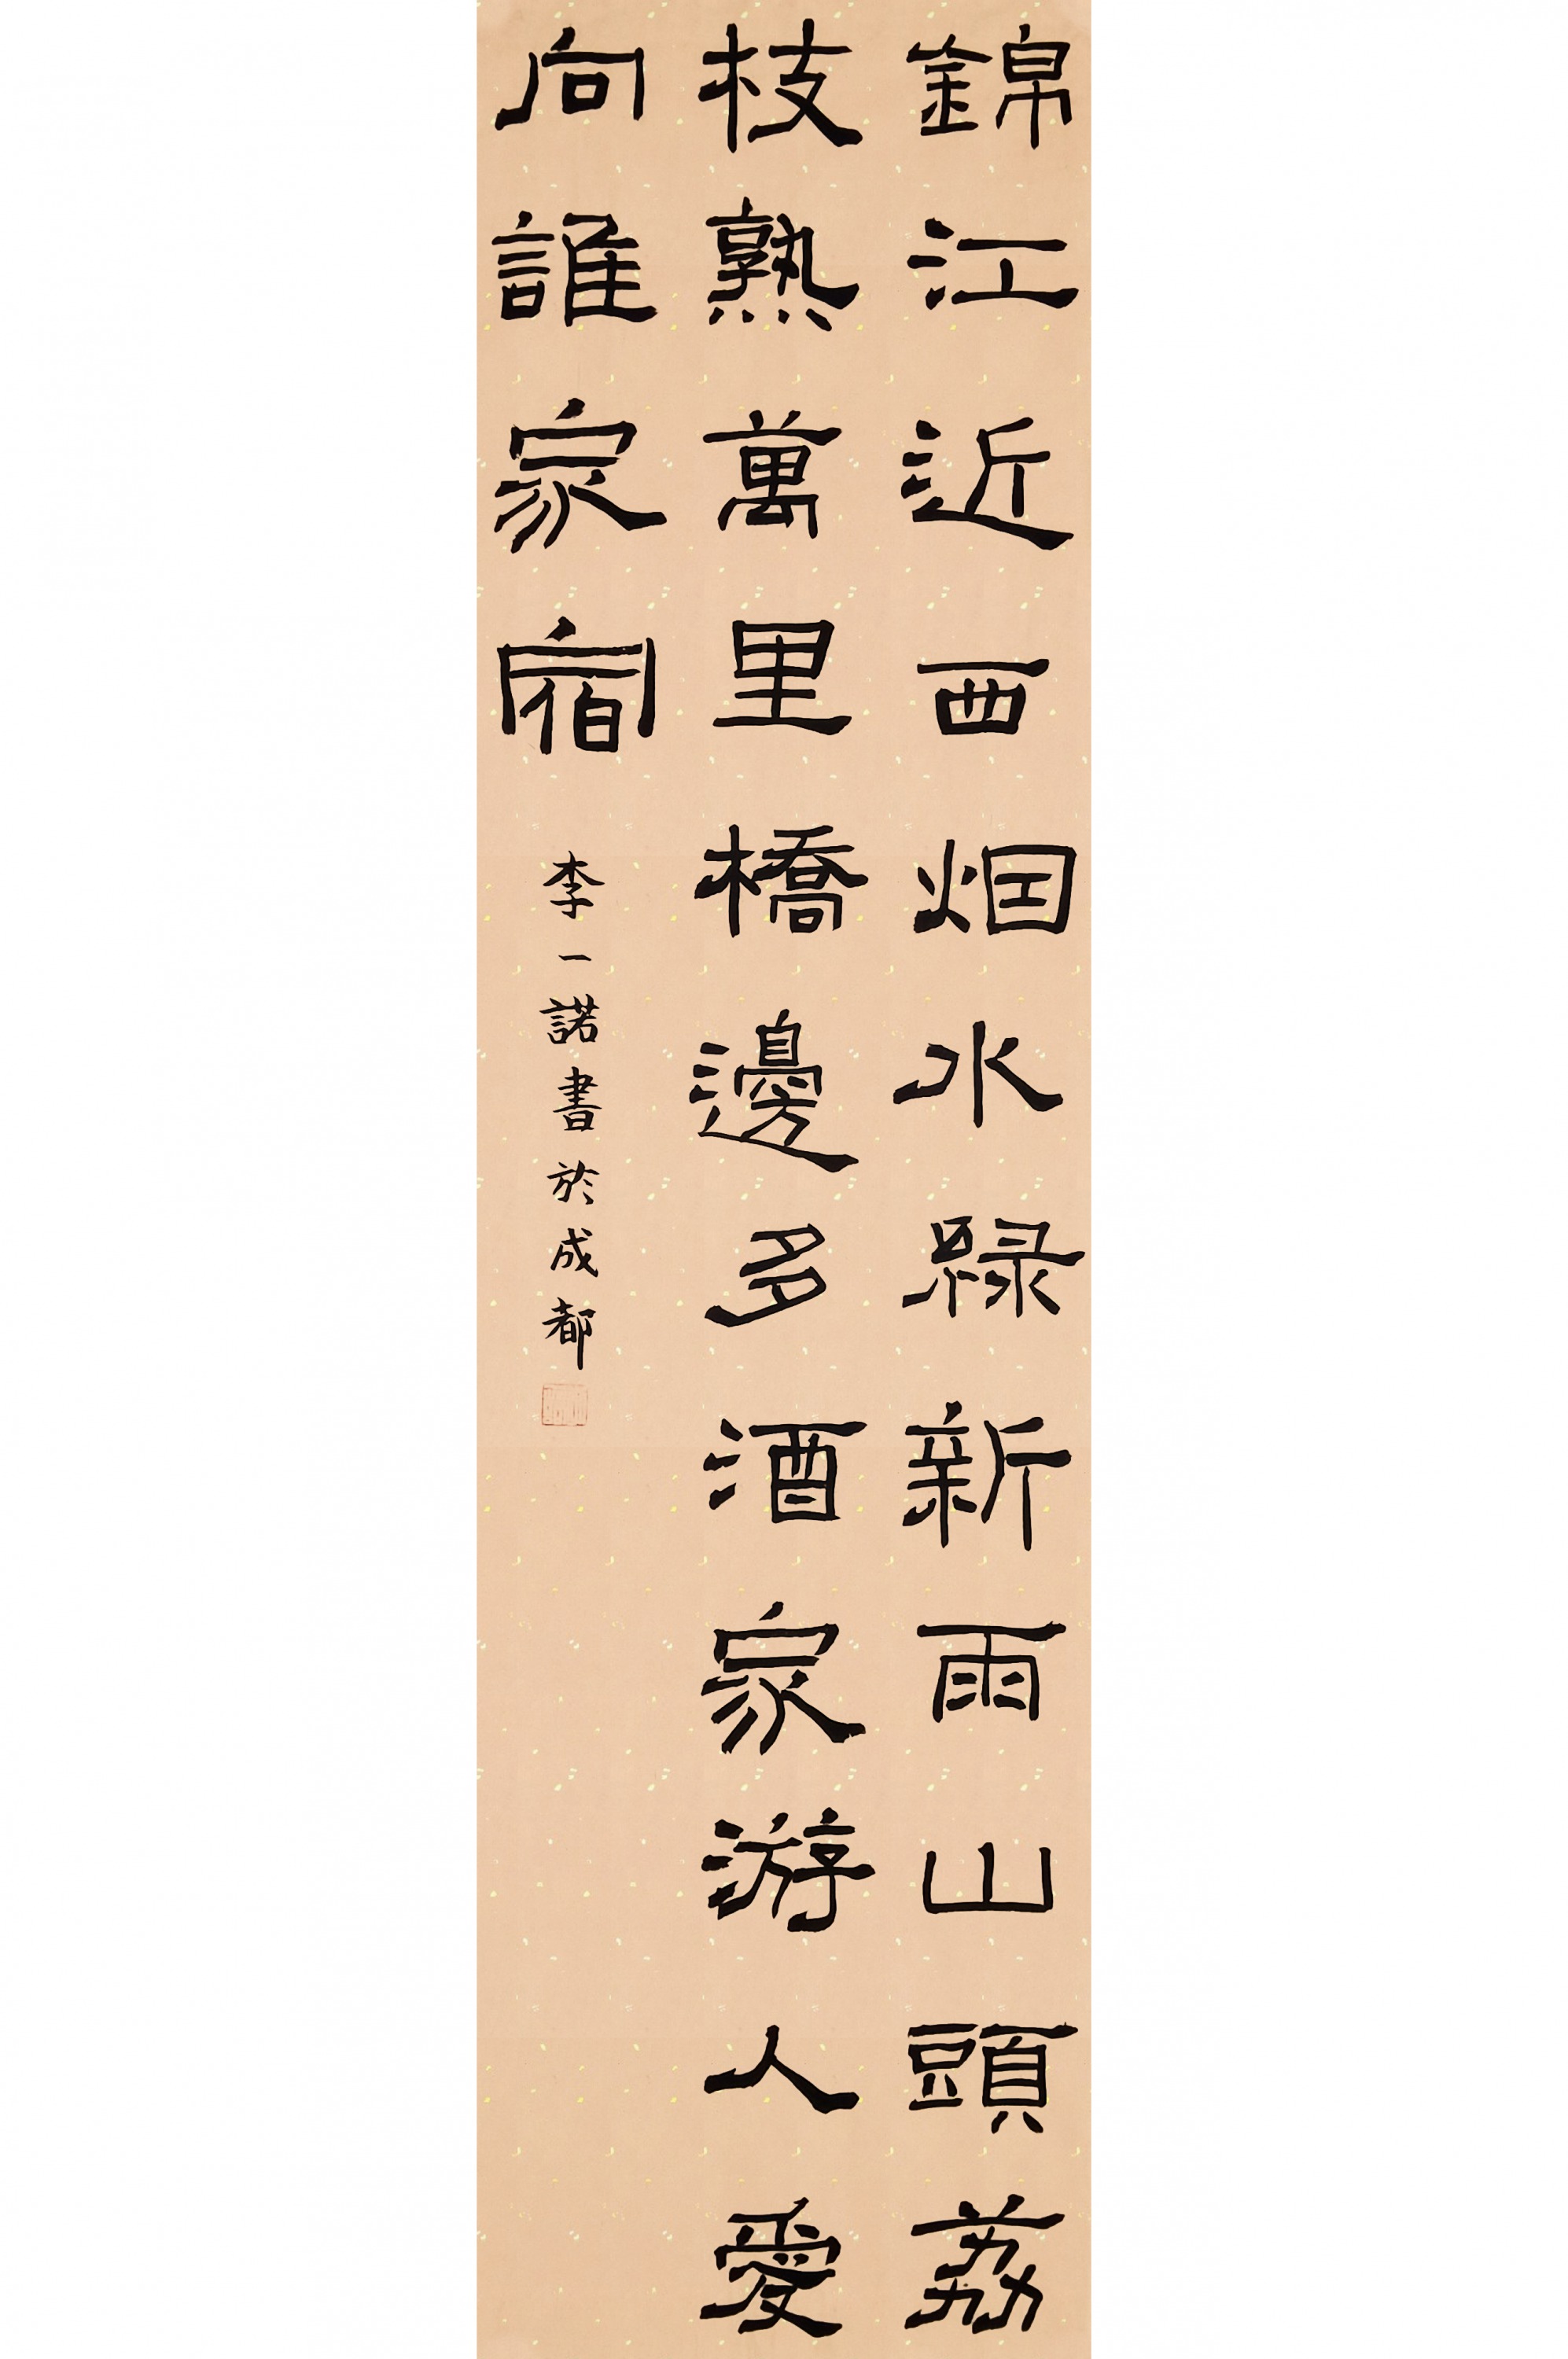 錦江近西烟水緑新雨山頭荔
枝熟萬里橋邊多酒家游人愛
向誰家宿
李一諾書於成都